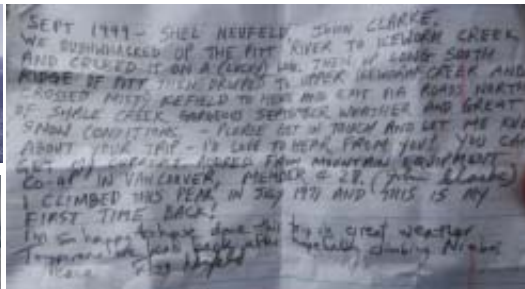 SEPT 1999 - SHEL NEUFELD, JOHN CLARKE.
WE BUSHWHACKED UP THE PITT RIVER TO ICEWORM CREEK
AND CROSSED IT ON A (LUCKY) LOG. THEN UP LONG SOUTH
RIDGE OF PITT THEN DROPPED TO UPPER ICEWORM CREEK AND
CROSSED MISTY ICEFIELD TO HERE AND EXIT VIA ROADS NORTH
OF SHALE CREEK GORGEOUS SEPTEMBER WEATHER AND GREAT
SNOW CONDITIONS - PLEASE GET IN TOUCH AND LET ME KNOW
ABOUT YOUR TRIP - I'D LOVE TO HEAR FROM YOU! YOU CAN
GET MY ADDRESS FROM MOUNTAIN EQUIPMENT
CO-OP IN VANCOUVER, MEMBER # 28. (John Clarke)
I CLIMBED THIS PEAK IN JULY 1971 AND THIS IS MY
FIRST TIME BACK!
I'm so happy to have done this trip in great weather
back after climbing
Shel Neufeld